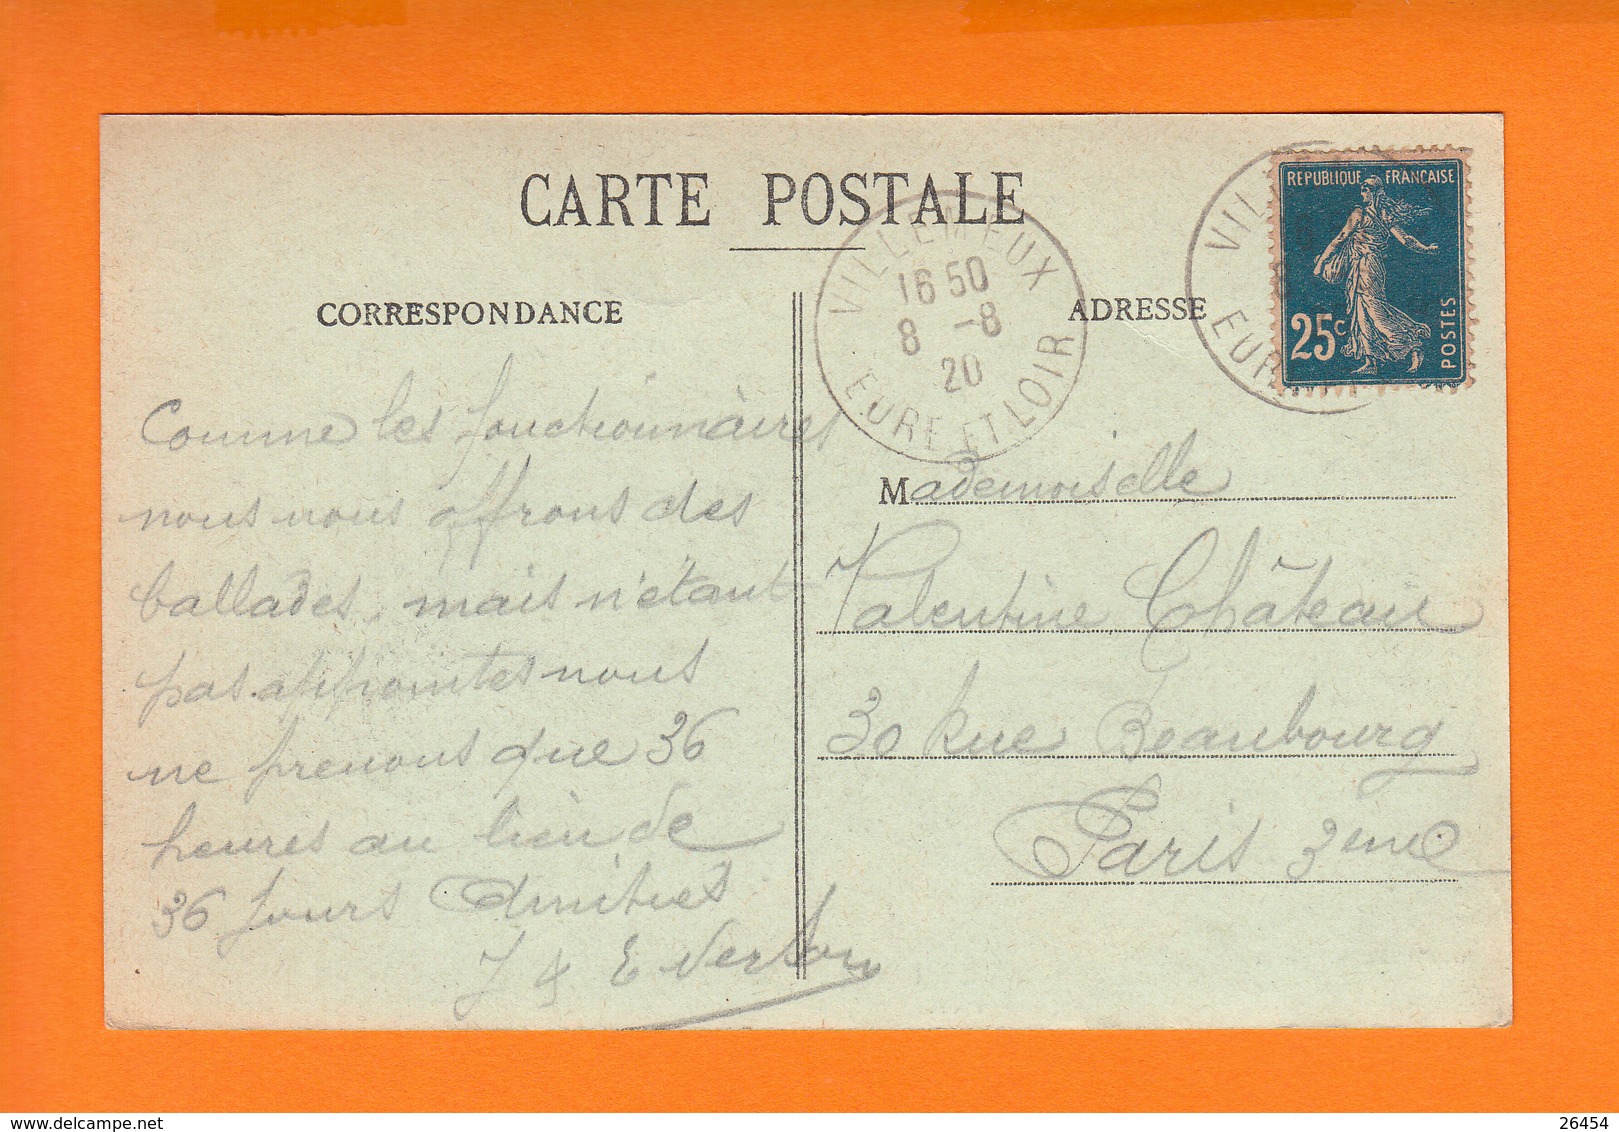 CARTE POSTALE
CORRESPONDANCE
ADRESSE
VILLEMEUX
16 50
8 -8
20
EURE ET LOIR
VIL
EUR
REPUBLIQUE FRANCAISE
25c
POSTES
Comme les fonctionnaires
nous nous offrons des
ballades, mais n'étant
pas appointés nous
ne prenons que 36
heures au lieu de
36 jours Amitiés
J & E
Mademoiselle
Valentine Château
30 Rue Beaubourg
Paris 3eme
delcampe.net
26454